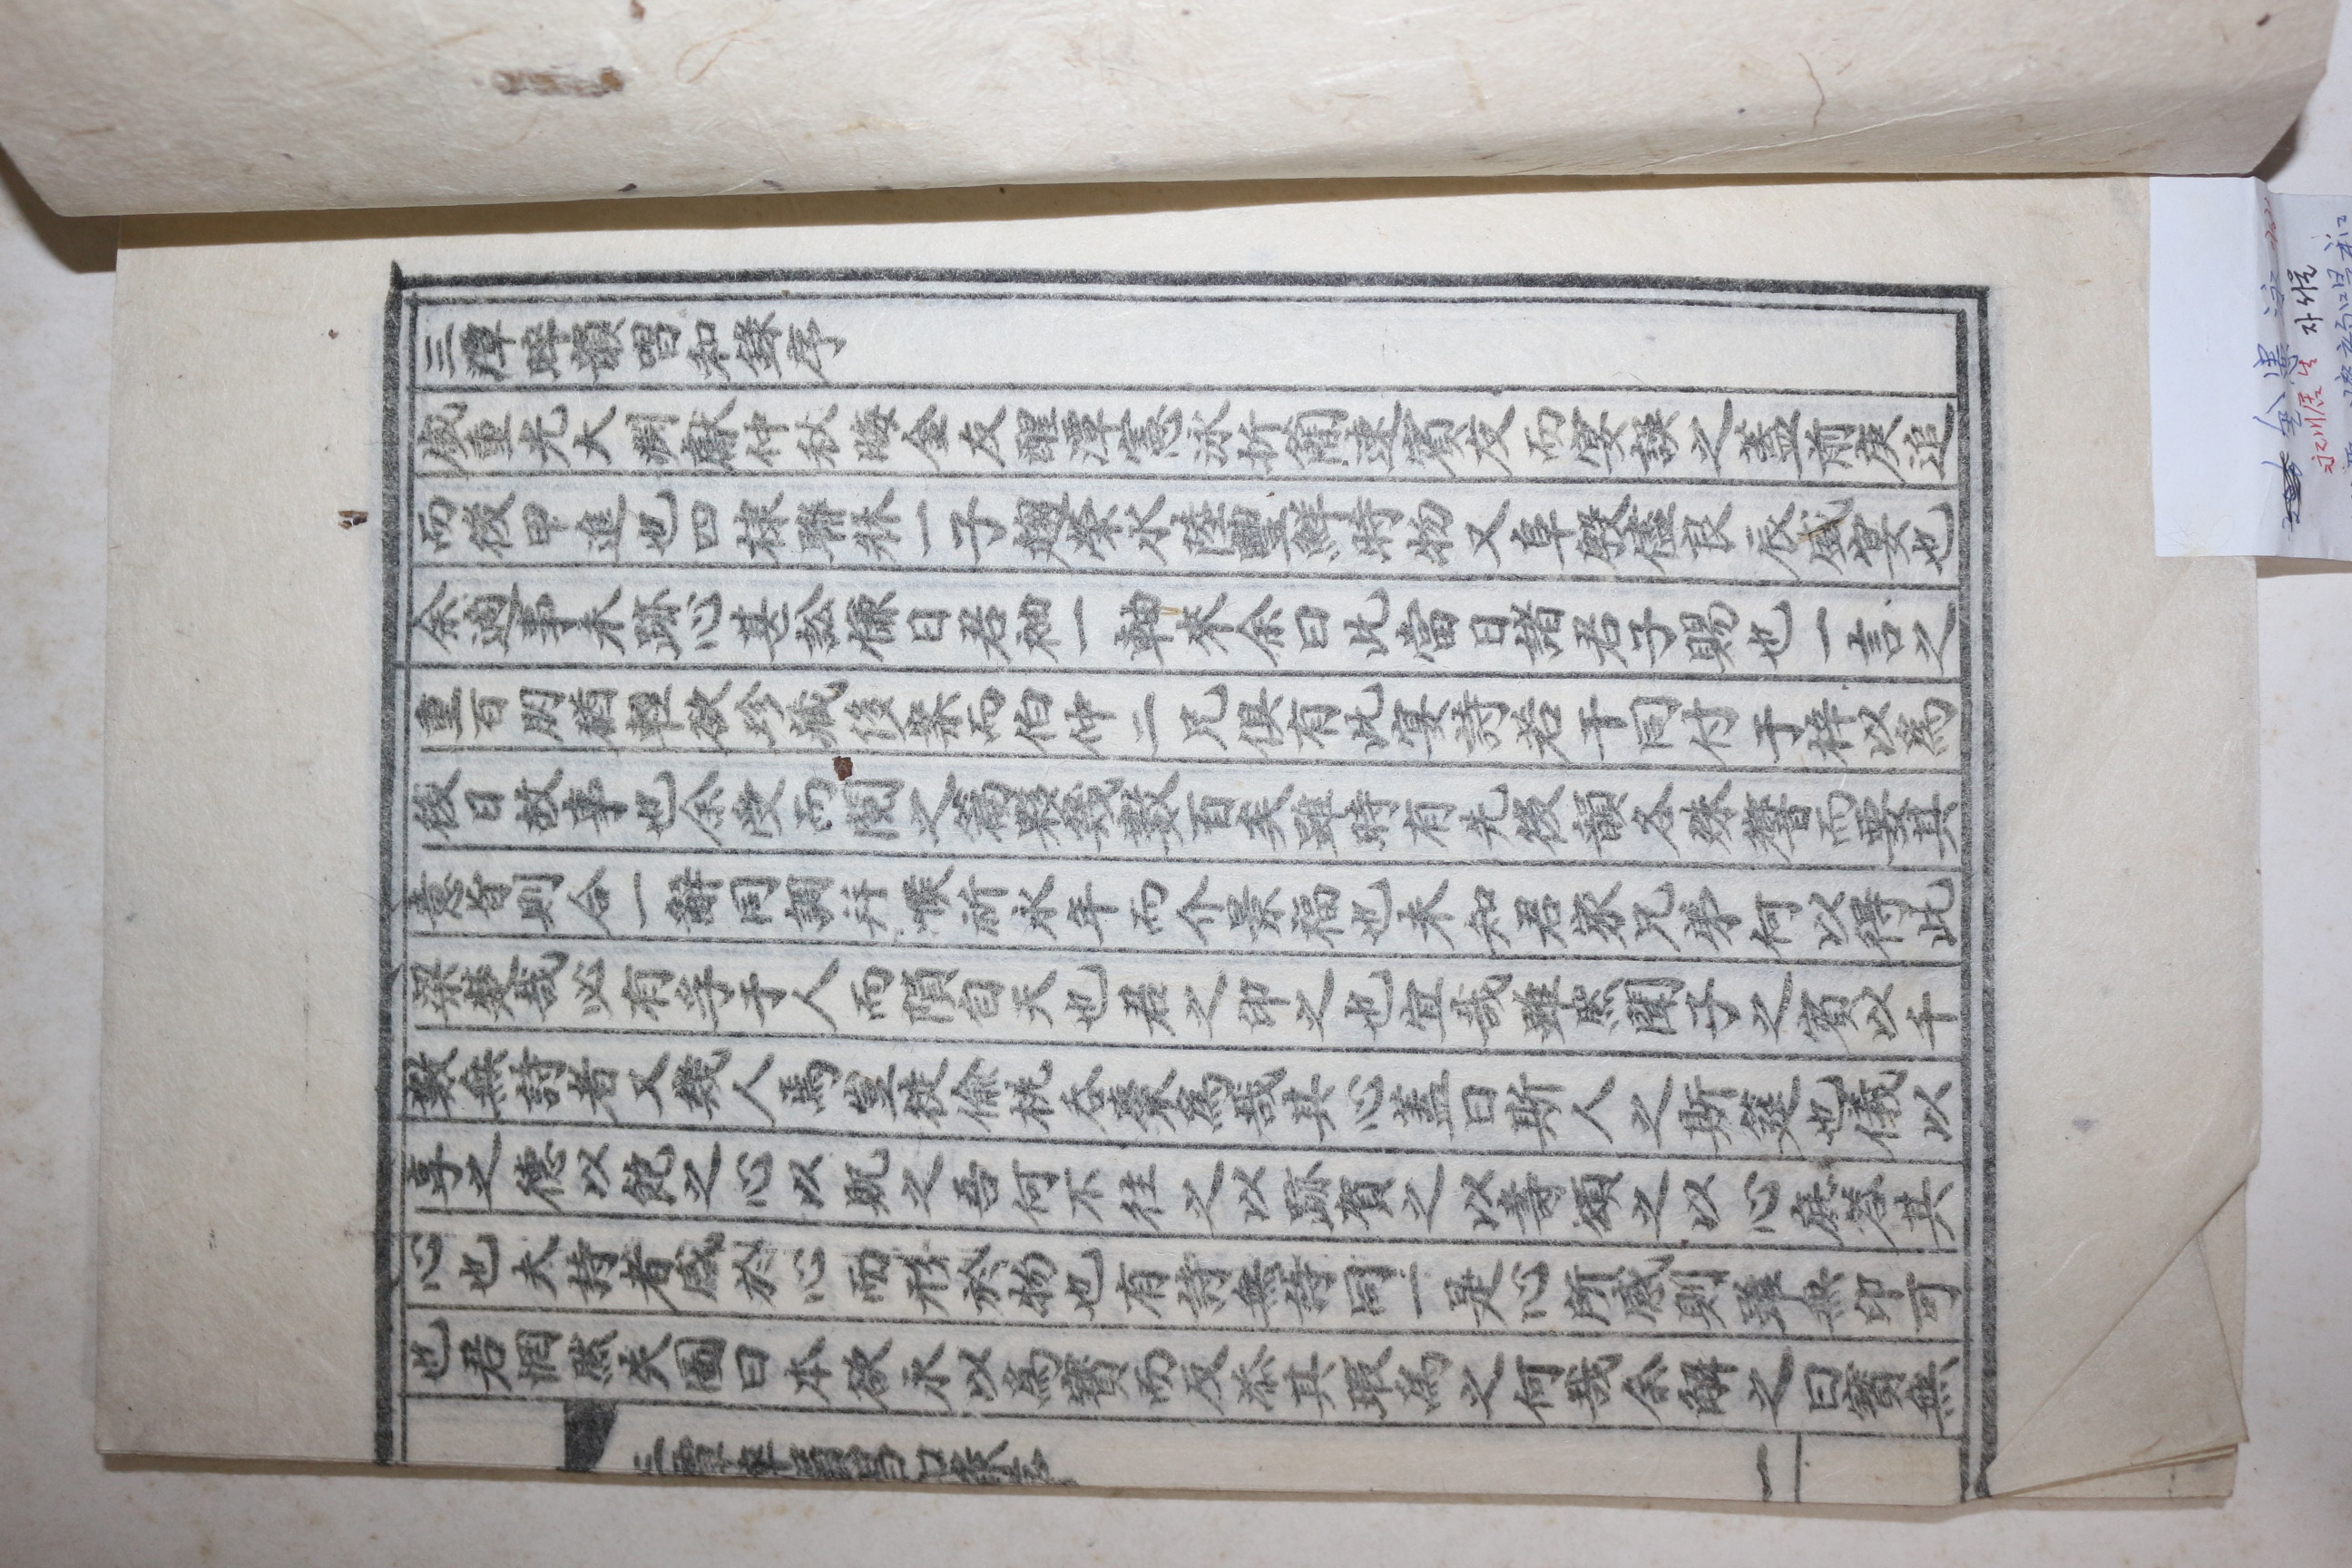 三潭晬韻唱和錄序
歲重光大淵獻仲秋晦金友醒潭憲泳折簡速賓友而宴誤之蓋前庚追
而後甲進也四棣聯牀一子趨榮水陸豐鮮時物又阜殷儘良辰盛宴也
余適事未跡心甚訟慊日君袖一軸來余曰此當日諸君子賜也一言之
重百朋猶輕欲珍藏後案而伯仲二兄俱有此宴詩若干同付于梓以爲
後日故事也余受而閱之篇夥幾數百矣雖時有先後韻各殊響而要其
意旨則合一辭同調幷喉祈永年而介景福也未知君家兄弟何以得此
梁楚哉必有孚于人而隕自天也君之印之也宜哉雖然聞子之賓以千
數無詩者又幾人焉豈徒偸桃呑棗爲哉其心蓋曰斯人之斯筵也儀以
享之德以飽之心以貺之吾何不往之以跡賀之以壽頌之以心庶答其
心也夫詩者感於心而形於物也有詩無詩同一是心所感則雖無印可
也君惘然失圖曰本欲永以爲寶而反忝其瑕爲之何哉余解之曰寶無
三潭晬韻唱和錄序
一
金憲泳
永川居生 자서문